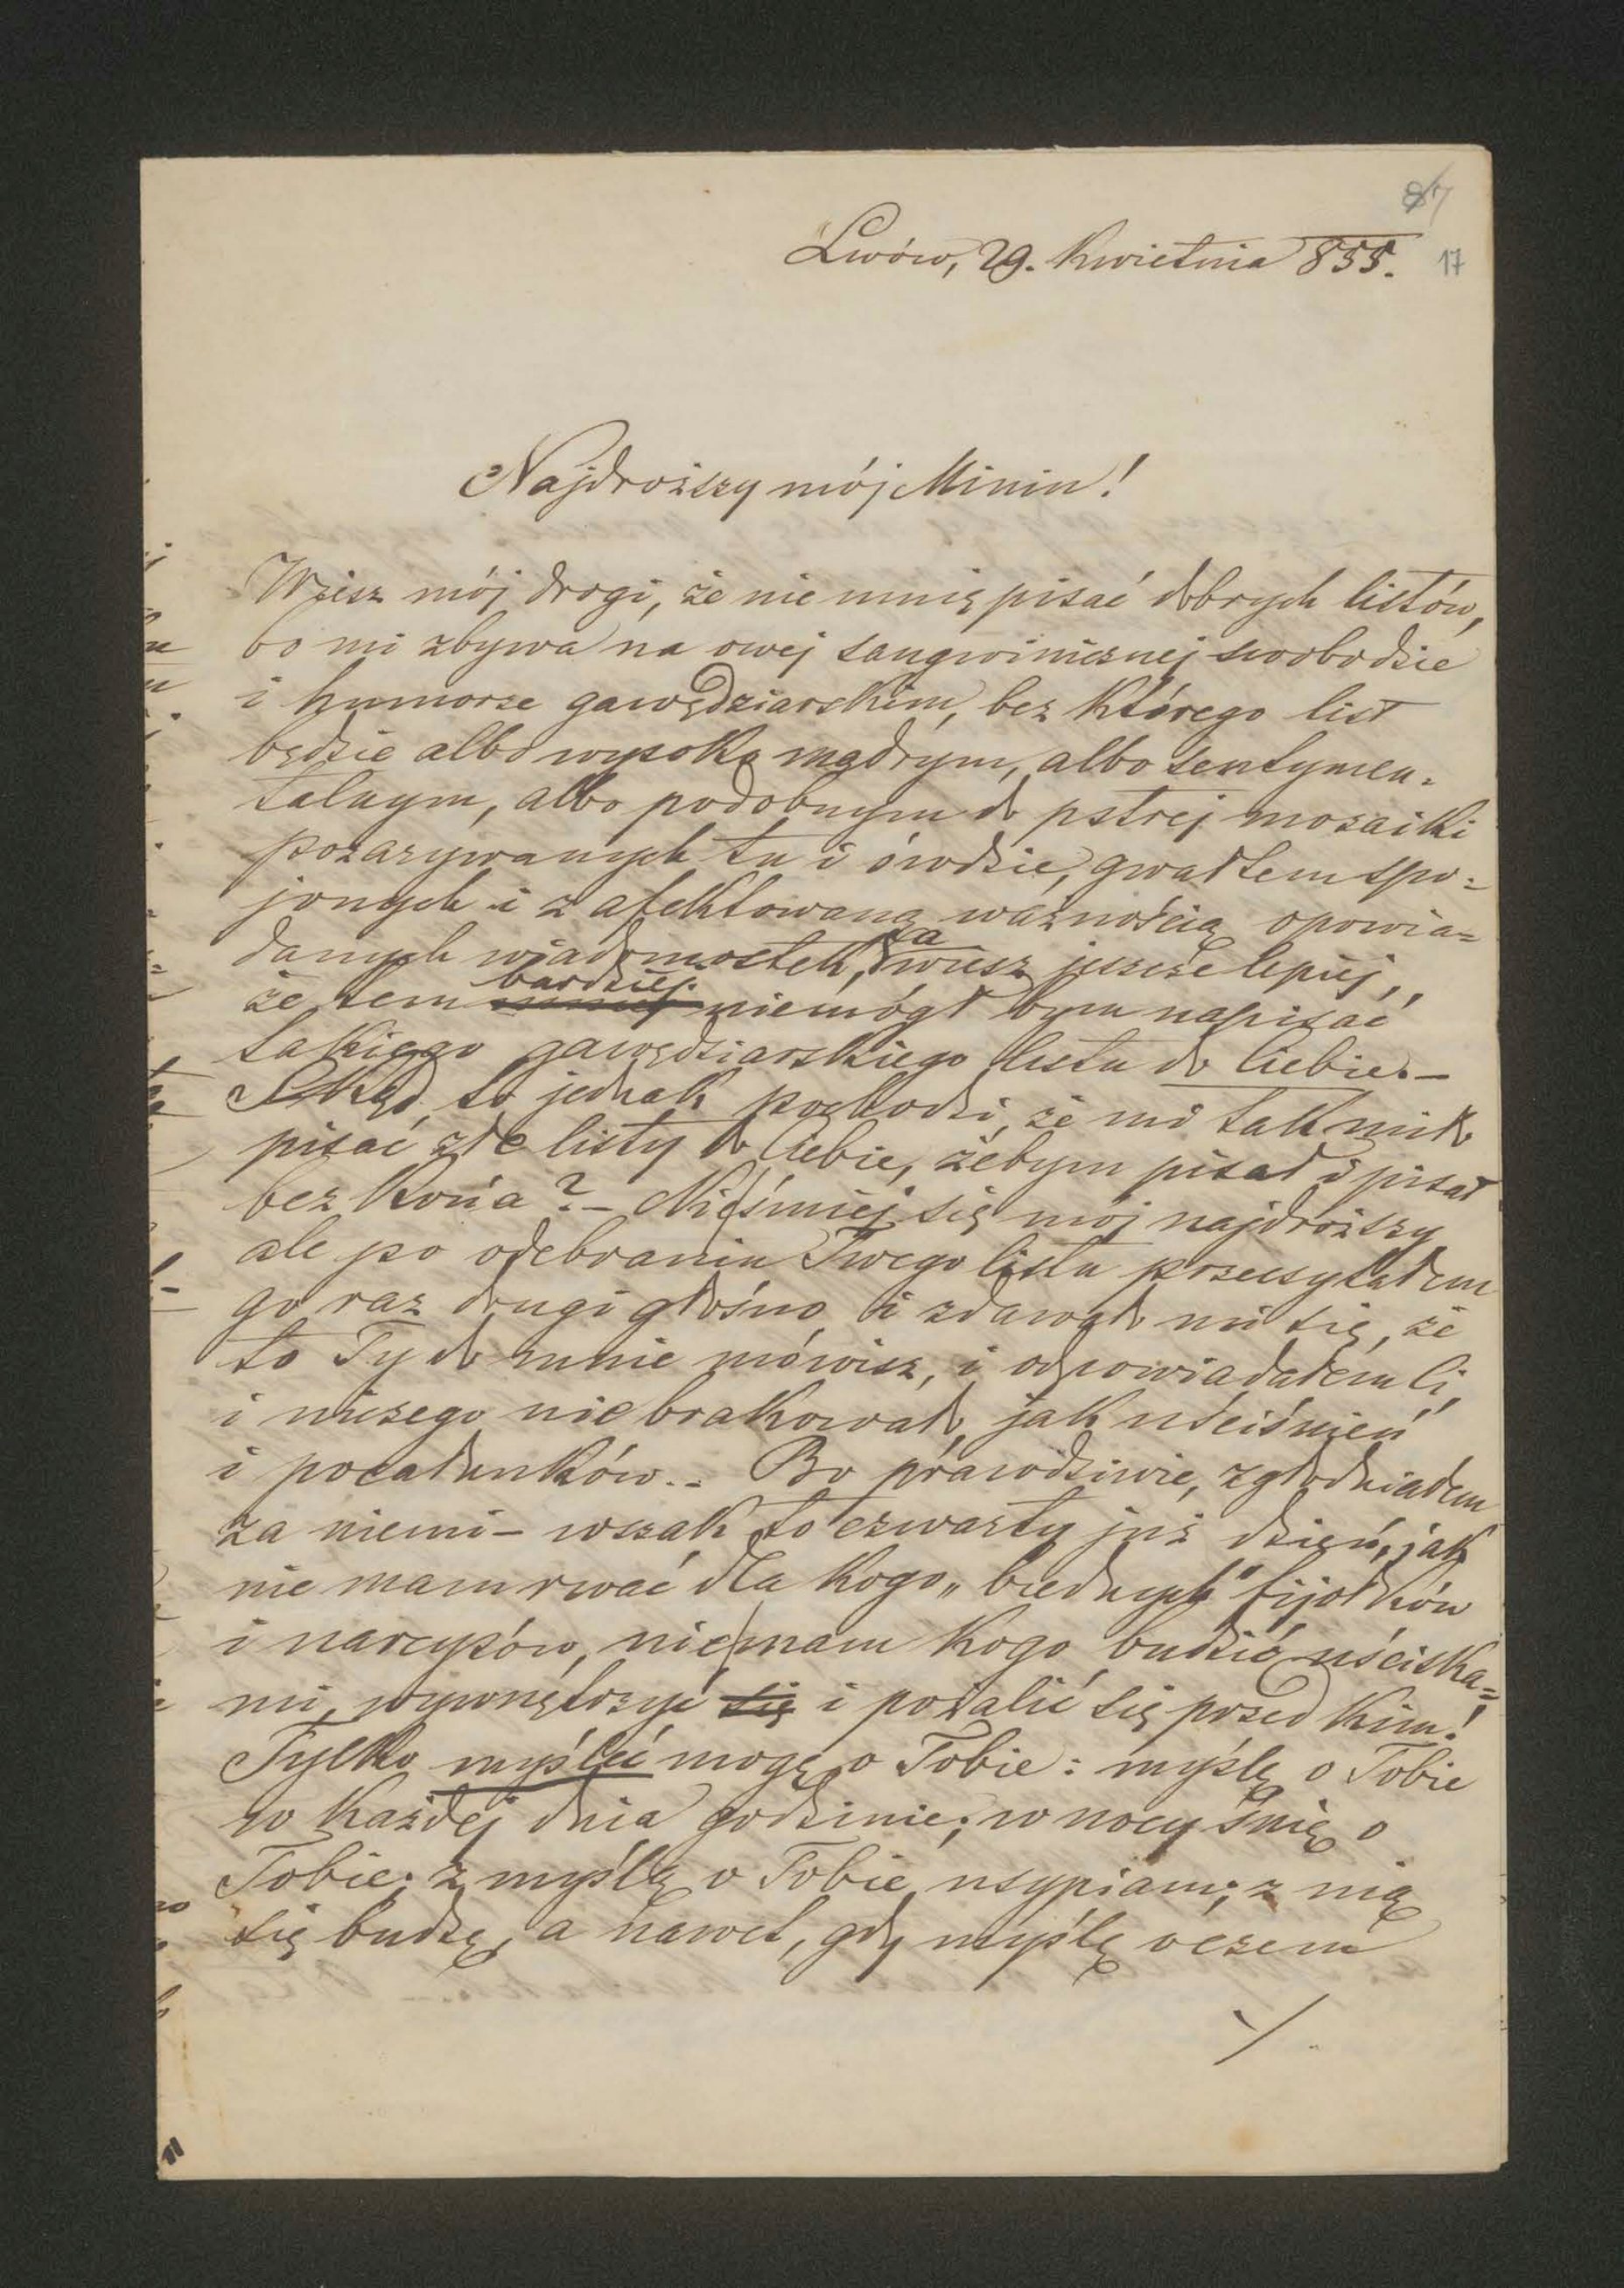 87
Lwów, 29. Kwietnia 855. 17
Najdroższy mój Miniu!
Wiesz mój drogi, że nie umię pisać dobrych listów,
bo mi zbywa na owej sangwinicznej swobodzie
i humorze gawędziarskim, bez którego list
będzie albo wysoko mądrym, albo sentymen=
talnym, albo podobnym do pstrej mozaiki
pozazywanych tu i ówdzie, gwałtem spo=
jonych i z afektowaną ważnością opowia=
danych wiadomostek, a wiesz jeszcze lepiej,
że tem bardziej niemógł bym napisać
takiego gawędziarskiego listu do Ciebie. –
Zkąd to jednak pochodzi, że mi tak miło
pisać złe listy do Ciebie, żebym pisał i pisał
bez końca? – Nie śmiej się mój najdroższy
ale po odebraniu Twego listu przeczytałem
go raz drugi głośno i zdawało mi się, że
to Ty do mnie mówisz, i odpowiadałem Ci,
i niczego nie brakowało, jak uściśnień
i pocałunków.. Bo prawdziwie, zgłodniałem
za niemi – wszak to czwarty już dzień, jak
nie mam rwać dla kogo „biednych" fijołków
i narcyzów, nie mam kogo budzić uściska=
mi, wywnętrzyć się i pożalić się przed kim!
Tylko myśleć mogę o Tobie: myślę o Tobie
w każdej dnia godzinie; w nocy śnię o
Tobie; z myślą o Tobie usypiam; z nią
się budzę, a nawet, gdy myślę o czem
./.